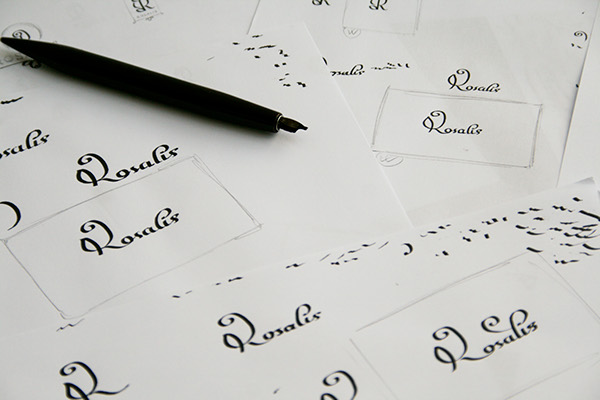 R
R
Rosalis
Rosalis
W
Rosalis
Rosalis
Rosalis
Rosalis
Rosalis
R